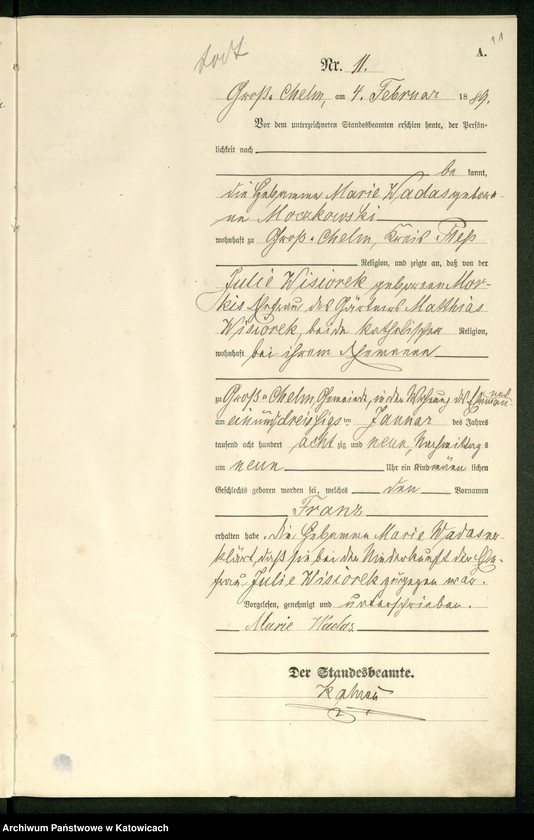 todt
11
A.
Nr. 11.
Groß-Chelm, am 4. Februar 1889.
Vor dem unterzeichneten Standesbeamten erschien heute, der Persön-
lichkeit nach
be kannt,
die Hebamme Marie Wadas gebore-
ne Moczkowski
wohnhaft zu Groß-Chelm, Kreis Pleß
Religion, und zeigte an, daß von der
Julie Wisiorek geborenen Mor-
kis Ehefrau des Gärtners Matthias
Wisiorek, beide katholischer Religion,
wohnhaft bei ihrem Ehemanne
zu Groß-Chelm, Gemeinde, in der Wohnung des
am einunddreißigsten Januar des Jahres
tausend acht hundert achtzig und neun, Nachmittags
um neun Uhr ein Kind männlichen
Geschlechts geboren worden sei, welches den Vornamen
Franz
erhalten habe. Die Hebamme Marie Wadas er-
klärt, daß sie bei der Niederkunft der Ehe-
frau Julie Wisiorek zugegen war.
Vorgelesen, genehmigt und unterschrieben.
Marie Wadas
Der Standesbeamte.
Archiwum Państwowe w Katowicach